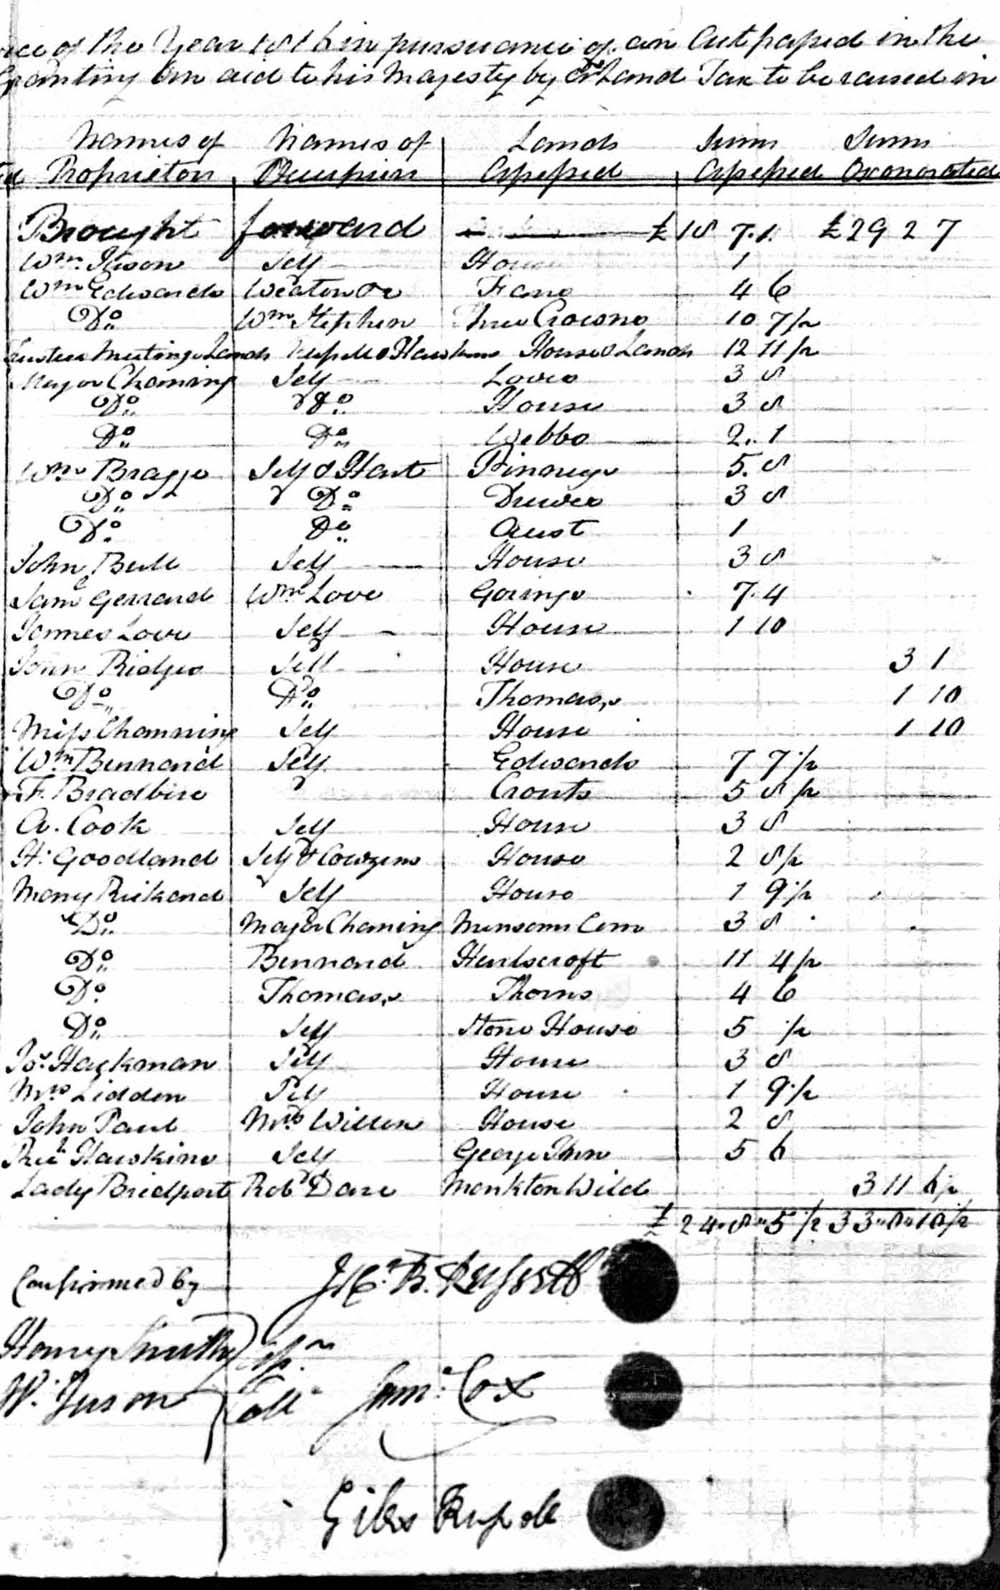 of the Year 1816 in pursuance of an Act passed in the
Granting an aid to his Majesty by a Land Tax to be raised in
Names of Names of Lands Sums Sums
Proprietors Occupiers Assessed Assessed Exonerated
Brought forward £18 7.1. £29 2 7
Wm. Self House 1
Wm Edwards 4 6
Do Wm Stephen Three Crowns 10 7½
Meeting Lands House & Lands 12 11½
Major Channing Self Loves 3 8
Do Do House 3 8
Do Do Webbs 2. 1
Wm Bragge Self & Hart Pinneys 5. 8
Do Do Drewes 3 8
Do Do Aust 1
John Bull Self House 3 8
Saml Gerrard Wm Love Gorings 7.4
James Love Self House 1 10
John Ridges Self House 3 1
Do Do Thomas's 1 10
Miss Channing Self House 1 10
Wm Bennard Self Edwards 7 7½
F. Bradbire Crouts 5 8½
A. Cook Self House 3 8
H. Goodland Self & Cowzens House 2 8½
Mary Rickard Self House 1 9½
Do Major Chaning 3 8
Do Bennard Hentscroft 11 4½
Do Thomas's Thorns 4 6
Do Self Stone House 5 ½
Jos. Hackman Self House 3 8
Mrs Lidden Self House 1 9½
John Paul Mrs Willen House 2 8
Richd Hawkins Self George Inn 5 6
Lady Bridport Robt Dare Monkton Wild 3 11 6½
£24..8..5½ 33..8..10½
Confirmed by
B. Russell
Henry Smith
W. Juson Saml. Cox
Giles Russell